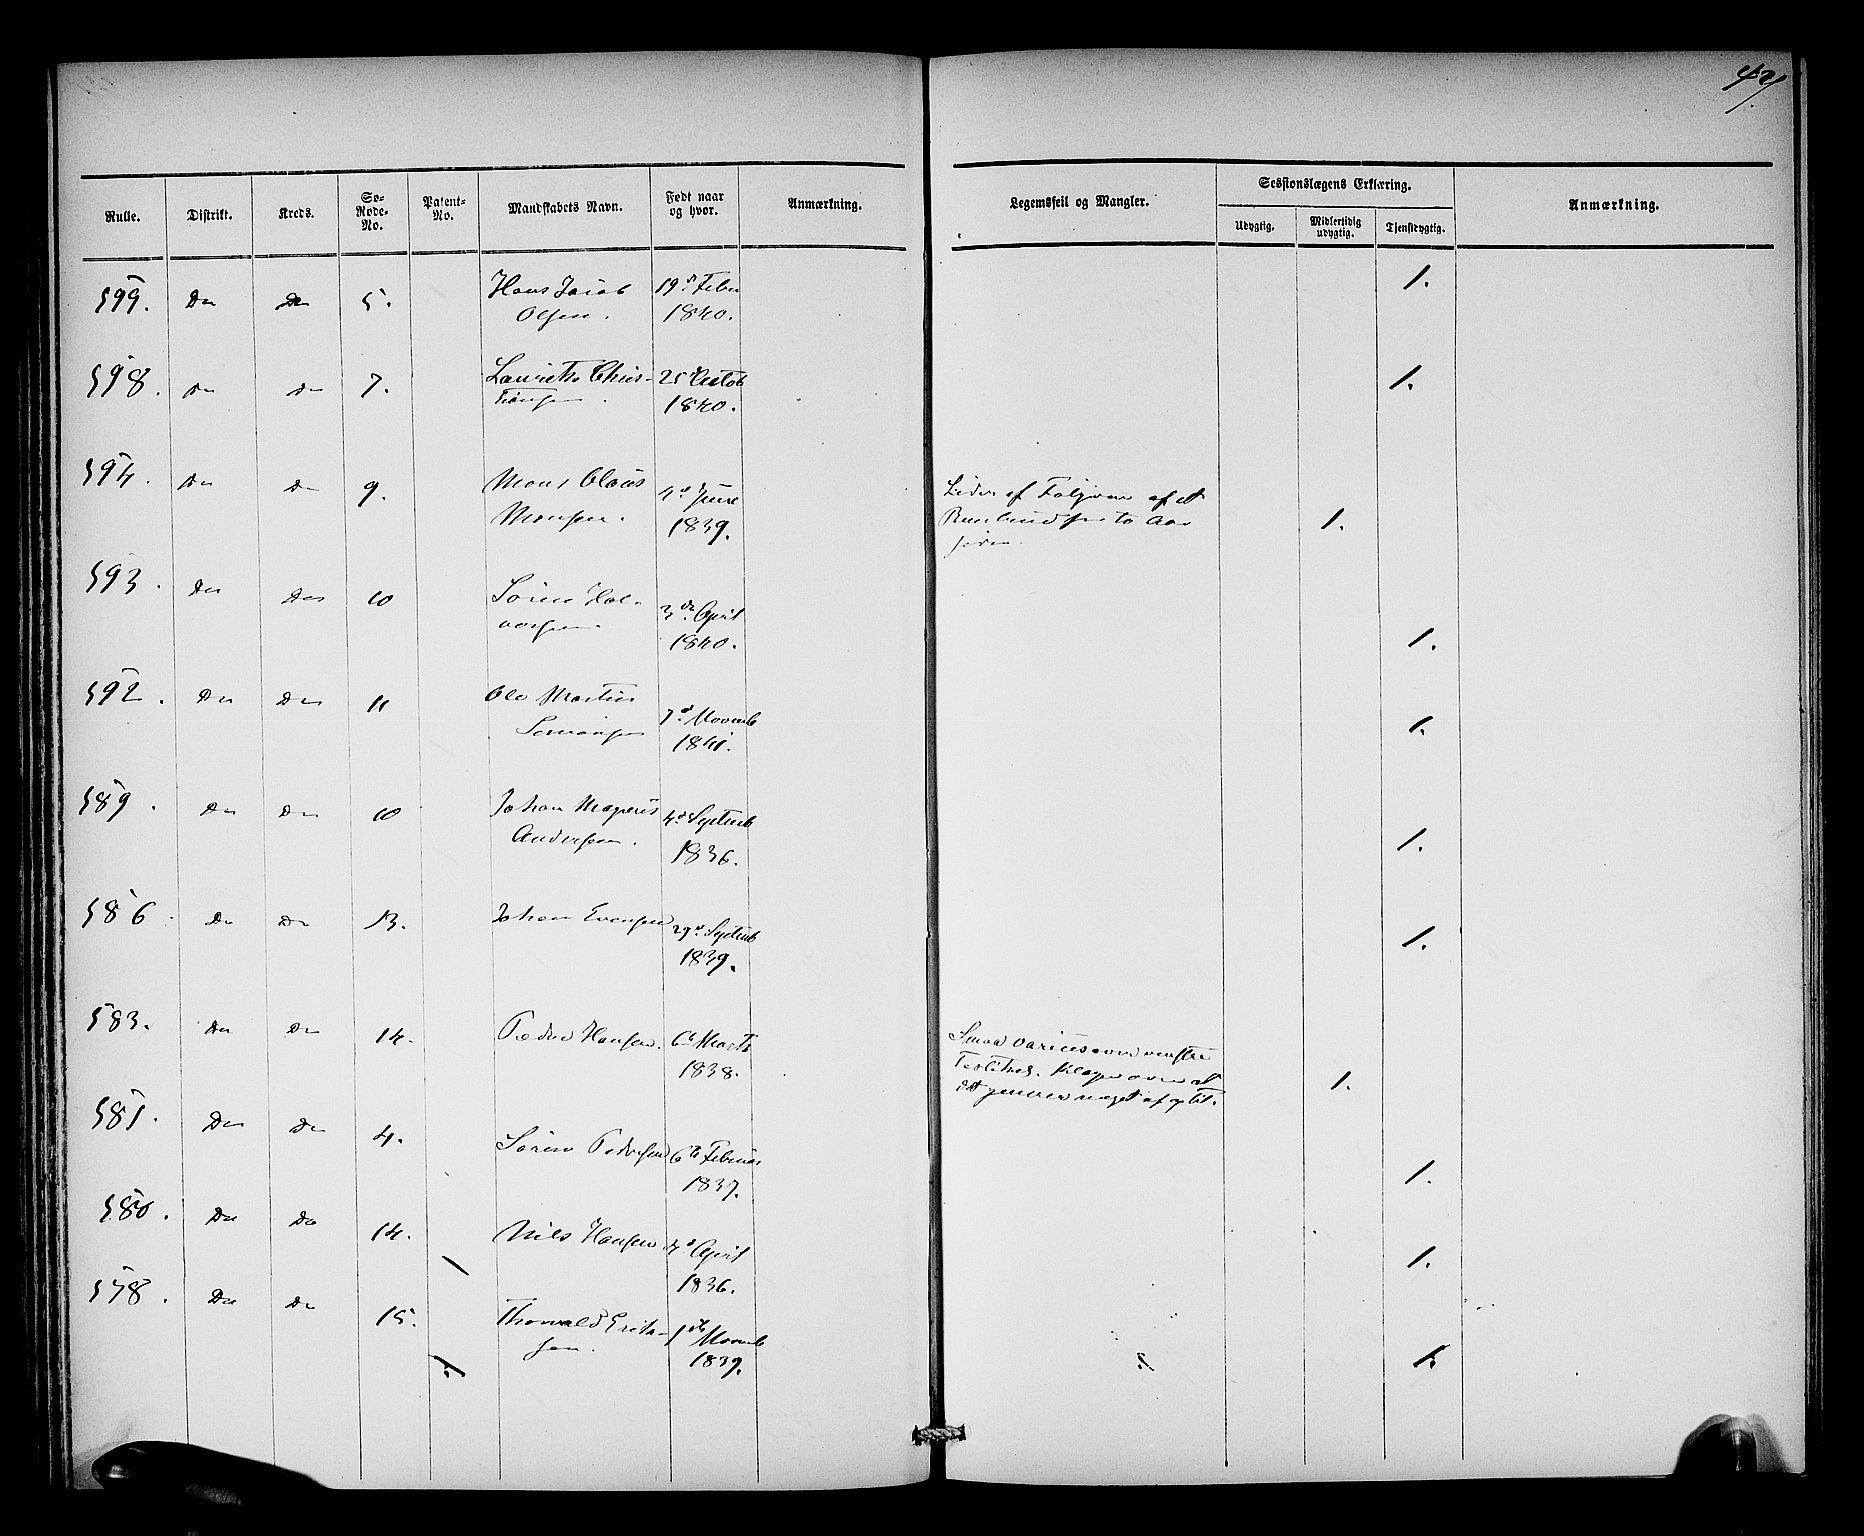 42
Rulle. Distrikt. Kreds. Sø-Rode-No. Patent-No. Mandskabets Navn. Født naar og hvor. Anmærkning.
Legemsfeil og Mangler. Sessionslægens Erklæring. Anmærkning.
Udygtig. Midlertidig udygtig. Tjenstdygtig.
599. Do Do 5. Hans Jacob 19d Febr 1.
Olsen. 1840.
598. Do Do 7. Laurits Chris- 25 Octob 1.
tiansen. 1840.
594. Do Do 9. Mons Claus 4d June Lider af Følgerne af et
Monsen. 1839. Benbrud for to Aar 1.
siden.
593. Do Do 10 Søren Hal- 3de April
vorsen. 1840. 1.
592. Do Do 11 Ole Martin 7d Novemb 1.
1841.
589. Do Do 10 Johan Magnus 4d Septemb
Andersen. 1836. 1.
586. Do Do 13. Johan Evensen 29d Septemb 1.
1839.
583. Do Do 14. Peder Hansen. 6te Marts Smaa varices over venstre
1838. Klager over at 1.
det generer meget af og til.
581. Do Do 4. Søren Pedersen 6te Februar 1.
1837.
580. Do Do 14. Nils Hansen April 1.
1836.
578. Do Do 15. Thorvald Erik- 1ste Novemb
sen. 1839. 1.